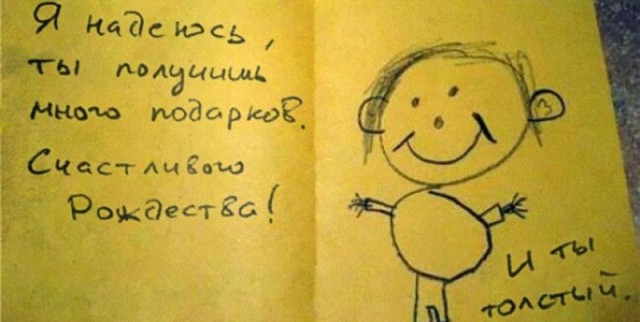 Я надеюсь,
ты получишь
много подарков.
Счастливого
Рождества!
И ты
толстый.